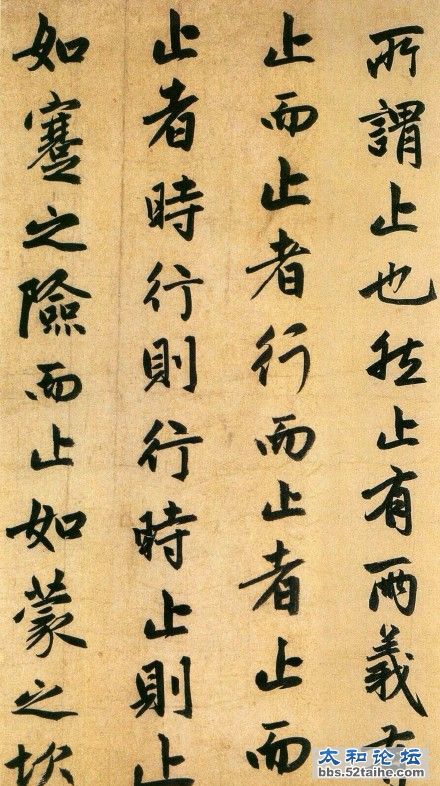 所謂止也然止有兩義有
止而止者行而止者止而
止者時行則行時止則止
如蹇之險而止如蒙之坎
太和论坛
bbs.52taihe.com